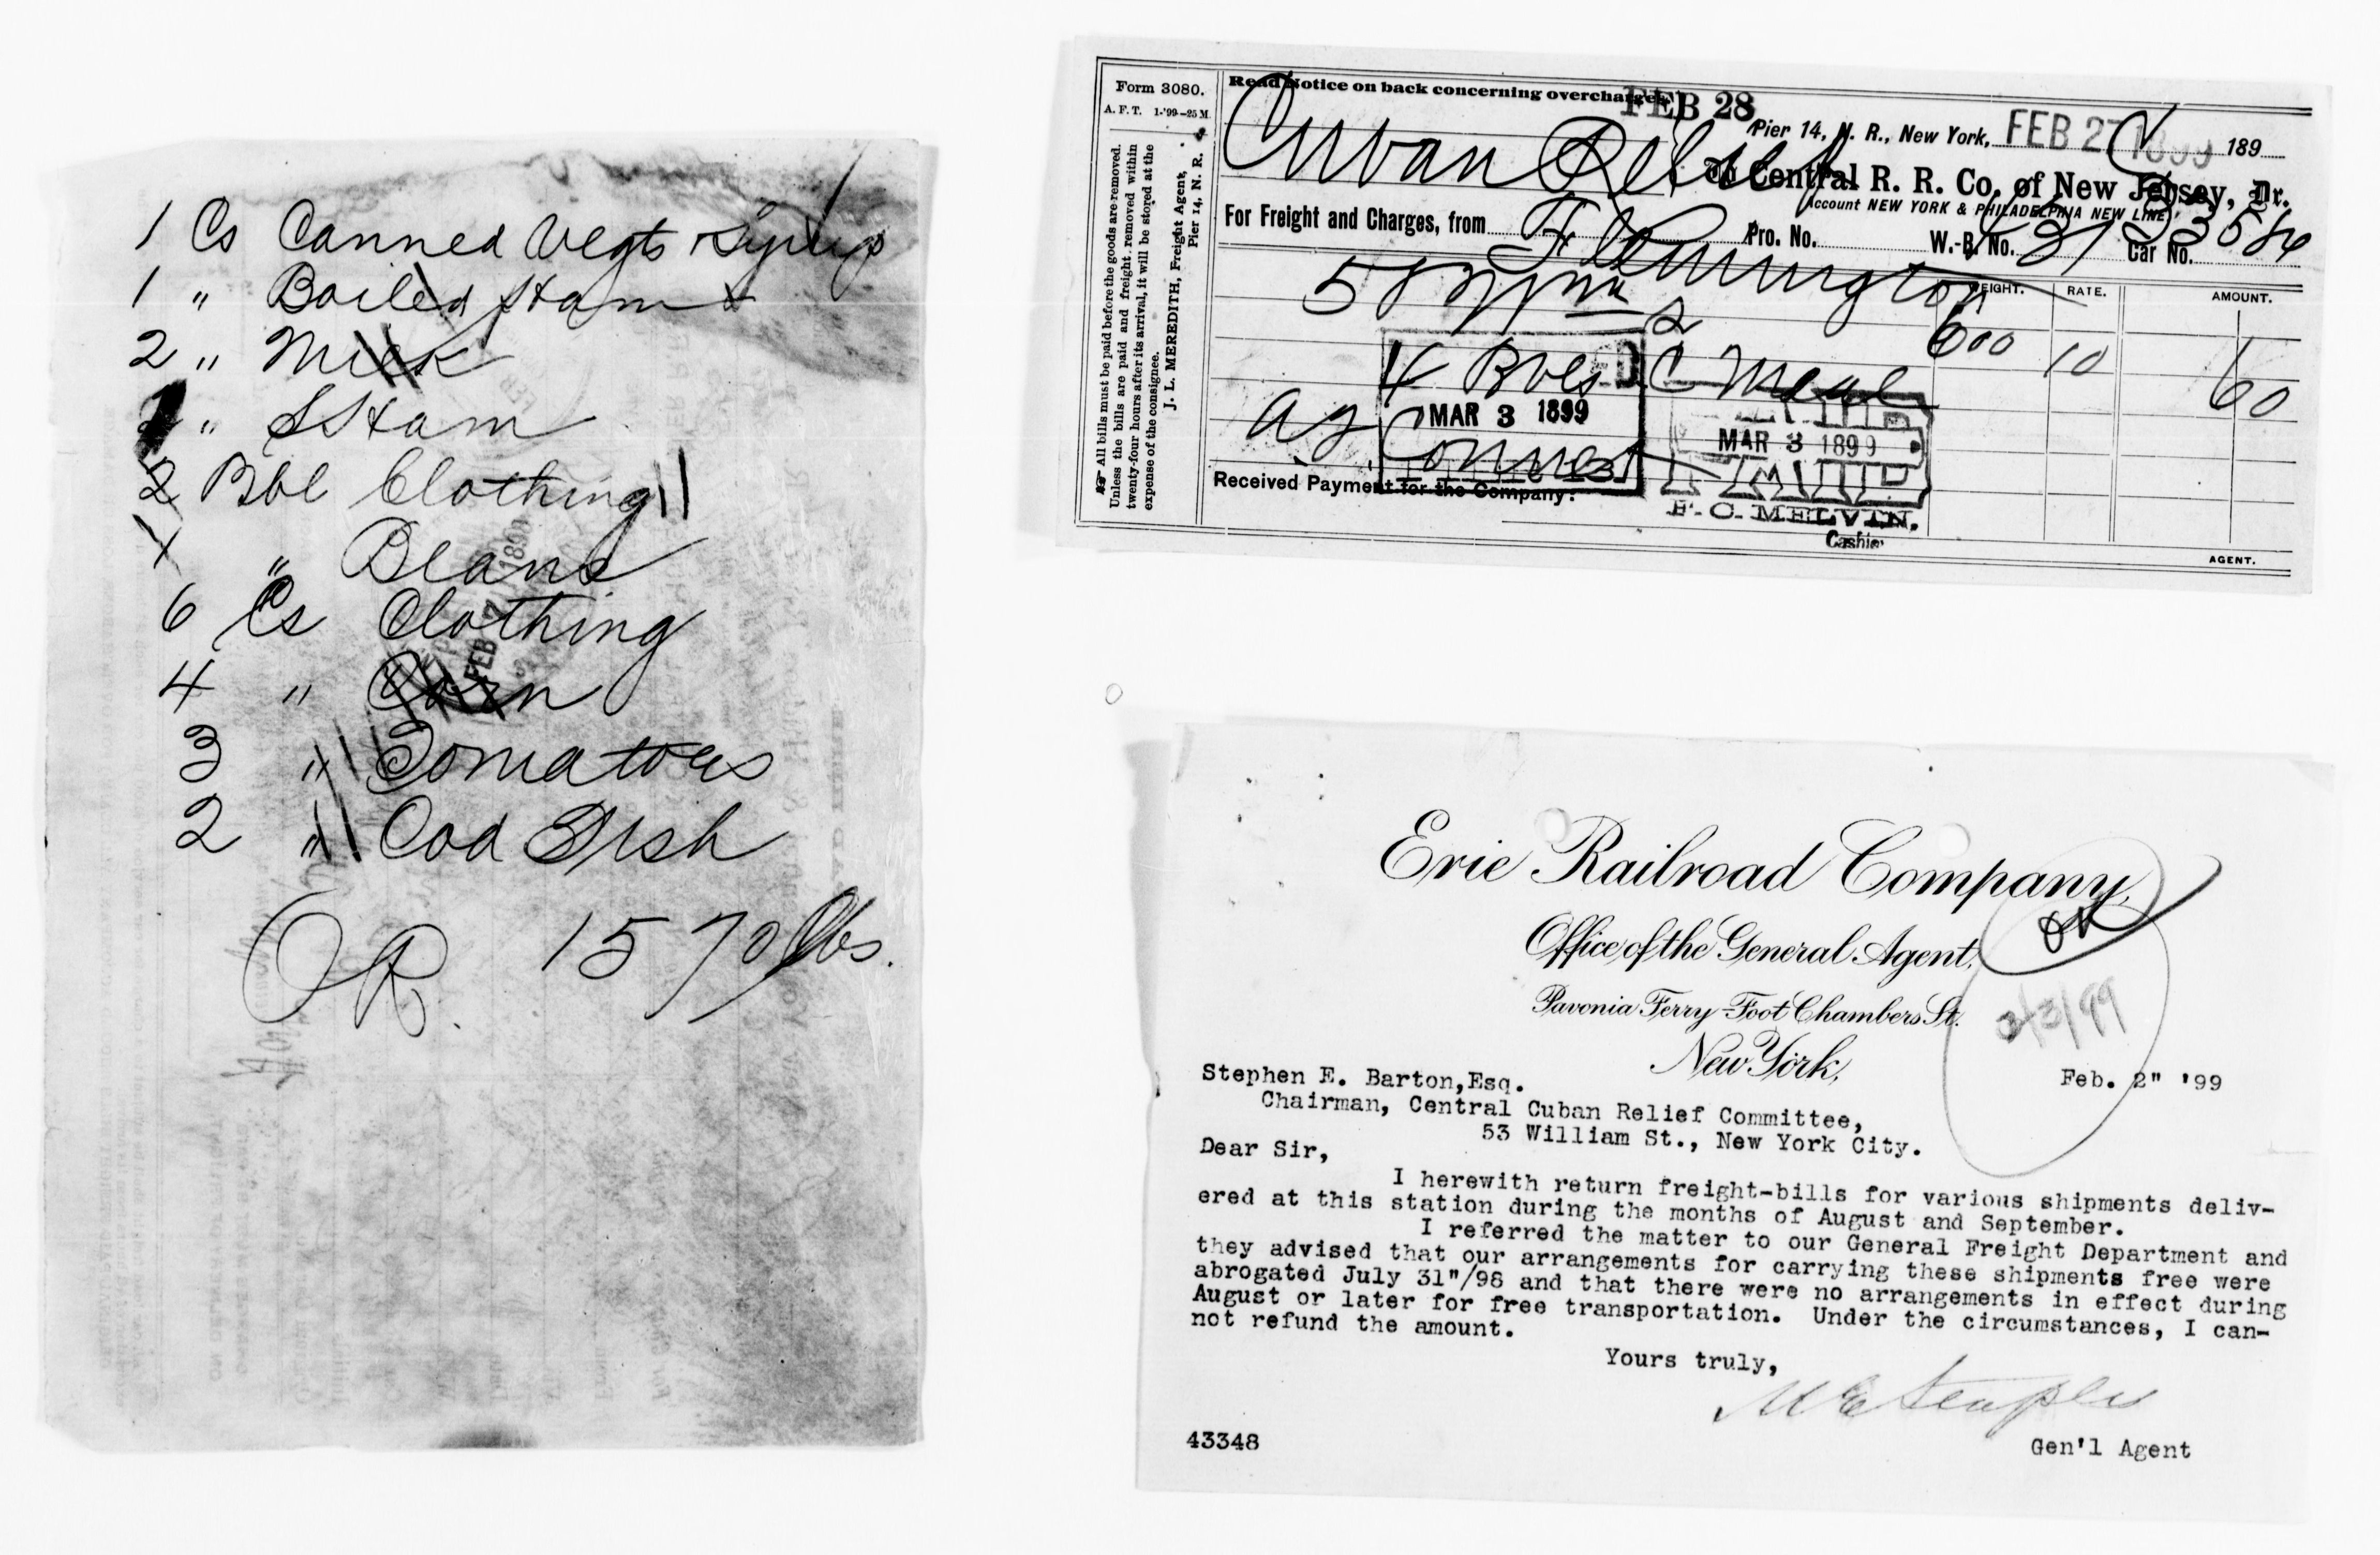 1 Cs Canned Vegts + Syrup
1 " Boiled Ham
2 " Milk
" Ham
2 Bbl Clothing
1 " Beans
6 Cs Clothing
4 " Corn
3 " Tomatoes
2 " Cod Fish
1570 lbs.
FEB 1899
Form 3080.
A. F. T. 1-'99-25 M.
All bills must be paid before the goods are removed.
Unless the bills are paid and freight removed within
twenty-four hours after its arrival, it will be stored at the
expense of the consignee.
J. L. MEREDITH, Freight Agent,
Pier 14, N. R.
Read Notice on back concerning overcharges.
FEB 28
Pier 14, N. R., New York, FEB 27 1899 189
Cuban Relief
To Central R. R. Co. of New Jersey, Dr.
Account NEW YORK & PHILADELPHIA NEW LINE,
For Freight and Charges, from Flemington Pro. No. W.-B. No. Car No.
WEIGHT. RATE. AMOUNT.
4 Bbls C Meal 600 10 60
MAR 3 1899
MAR 3 1899
Received Payment for the Company:
F. C. MELVIN,
Cashier
AGENT.
Erie Railroad Company,
OK
Office of the General Agent,
Pavonia Ferry-Foot Chambers St.
2/3/99
New York,
Feb. 2" '99
Stephen E. Barton,Esq.
Chairman, Central Cuban Relief Committee,
53 William St., New York City.
Dear Sir,
I herewith return freight-bills for various shipments deliv-
ered at this station during the months of August and September.
I referred the matter to our General Freight Department and
they advised that our arrangements for carrying these shipments free were
abrogated July 31"/98 and that there were no arrangements in effect during
August or later for free transportation. Under the circumstances, I can-
not refund the amount.
Yours truly,
43348
Gen'l Agent